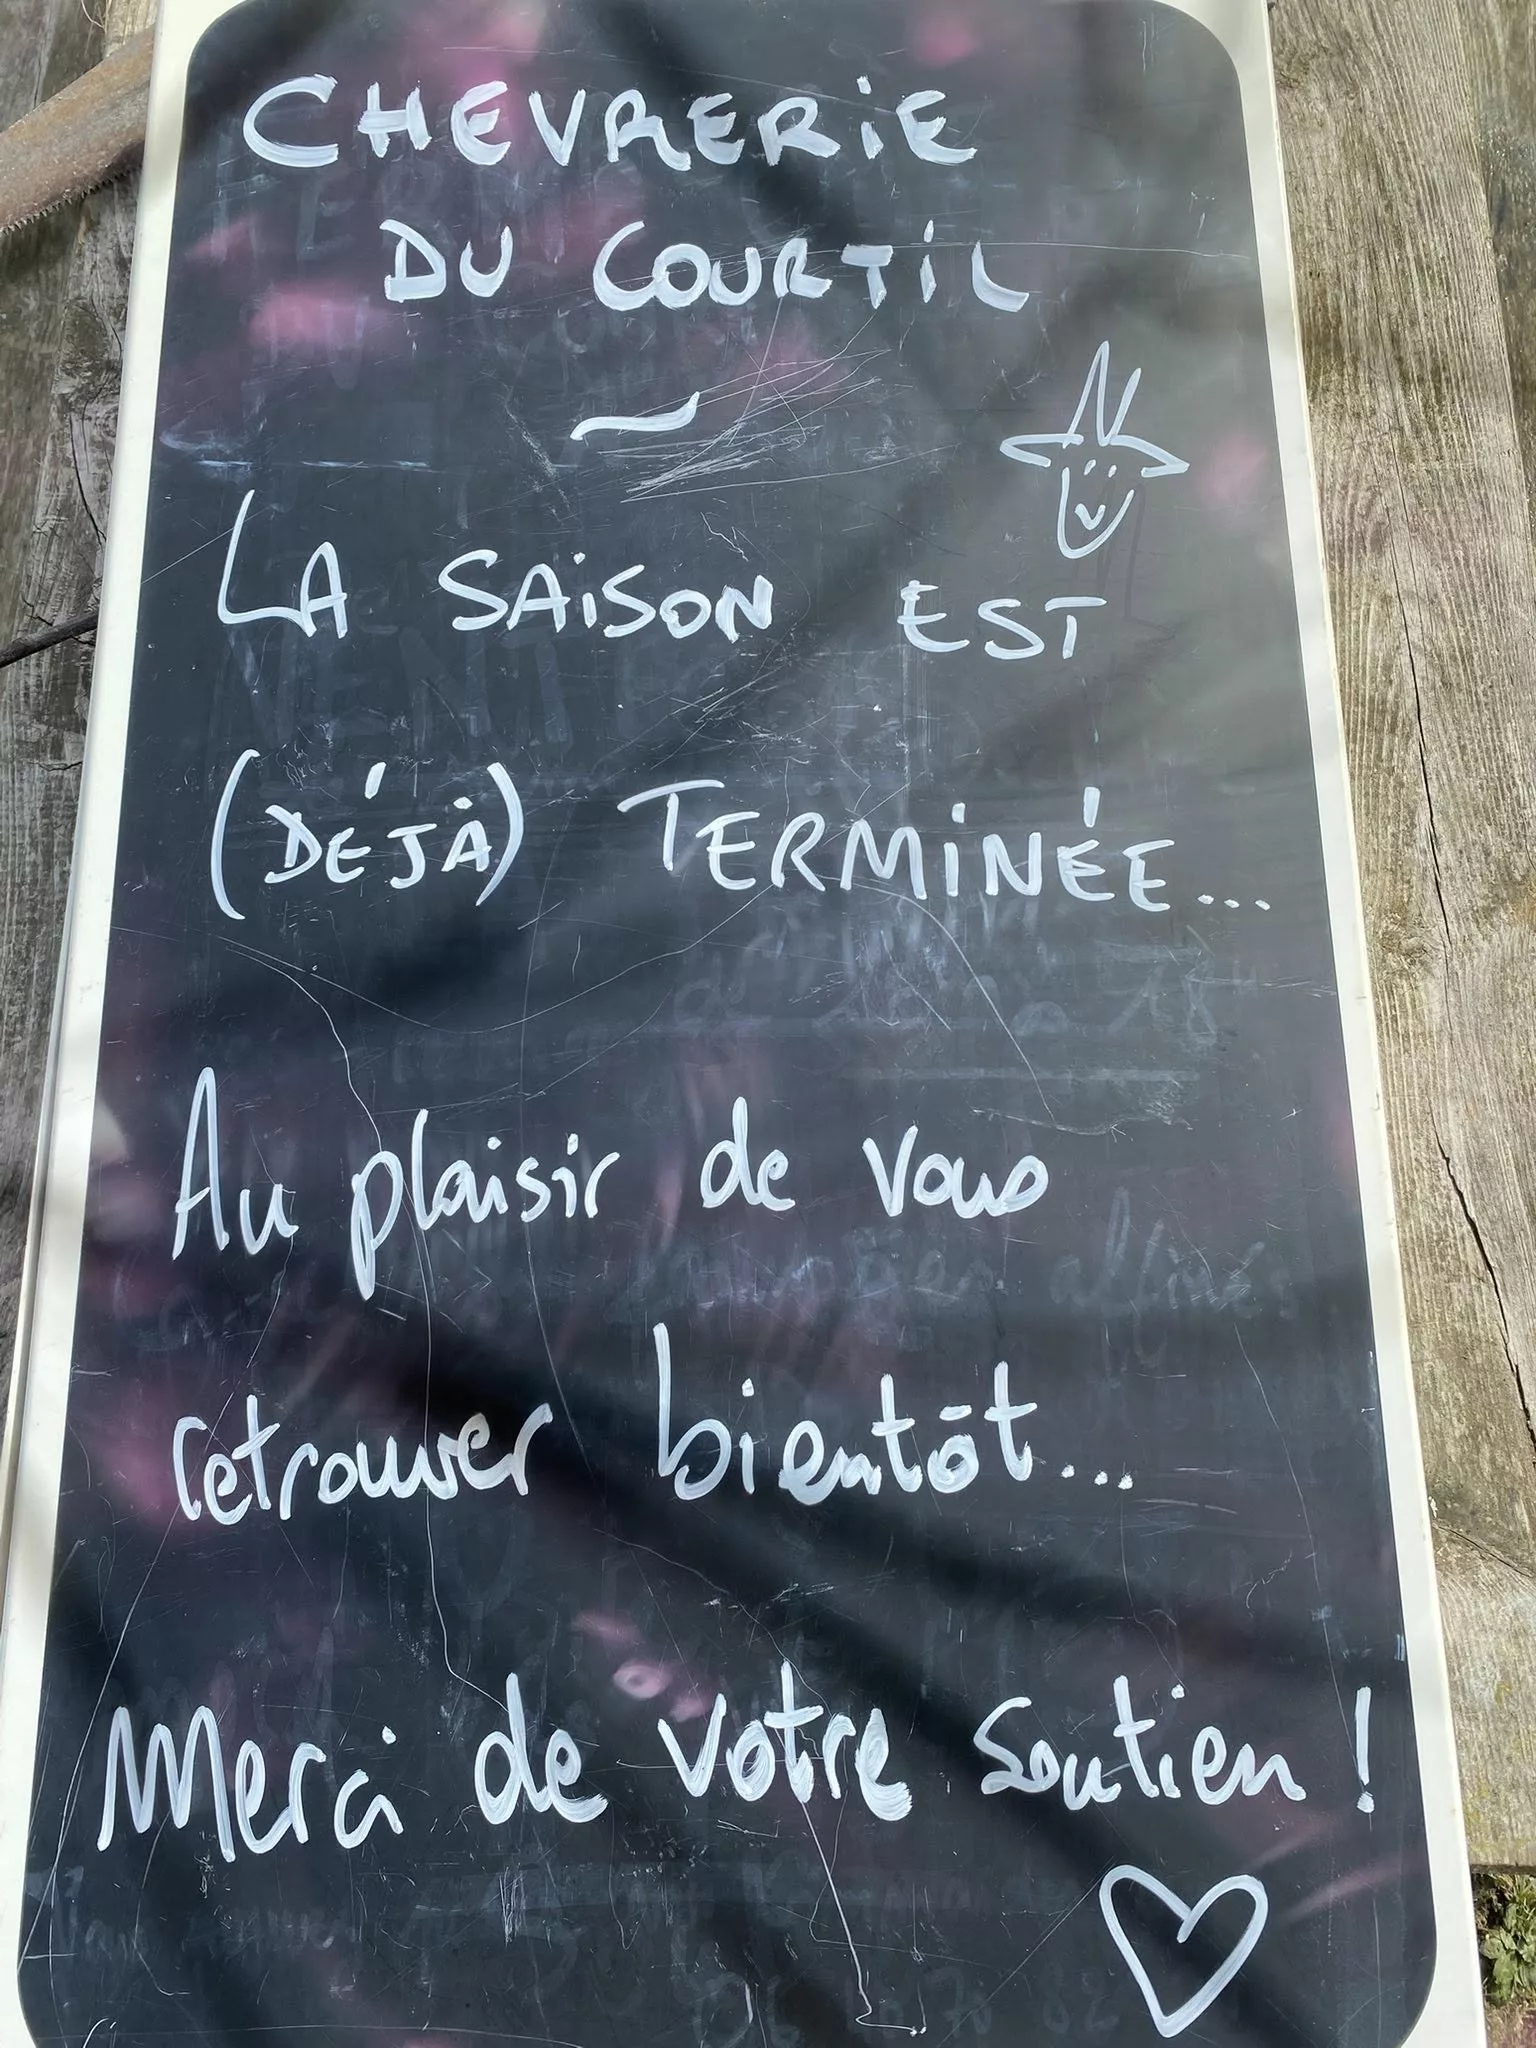 CHEVRERIE
DU COURTIL
~
LA SAISON EST
(DÉJÀ) TERMINÉE...
Au plaisir de vous
retrouver bientôt...
Merci de votre soutien !